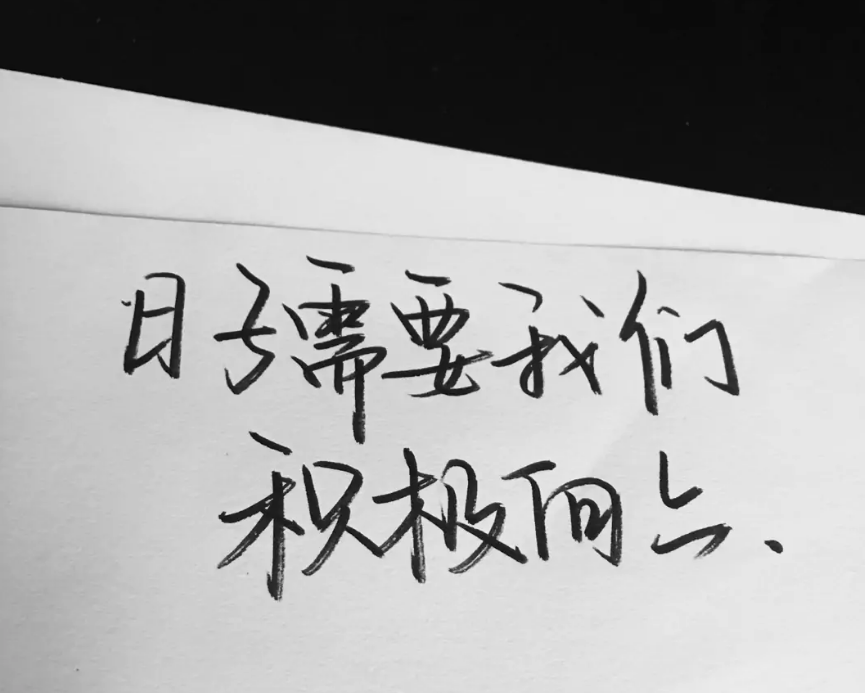 日子需要我们
积极向上.